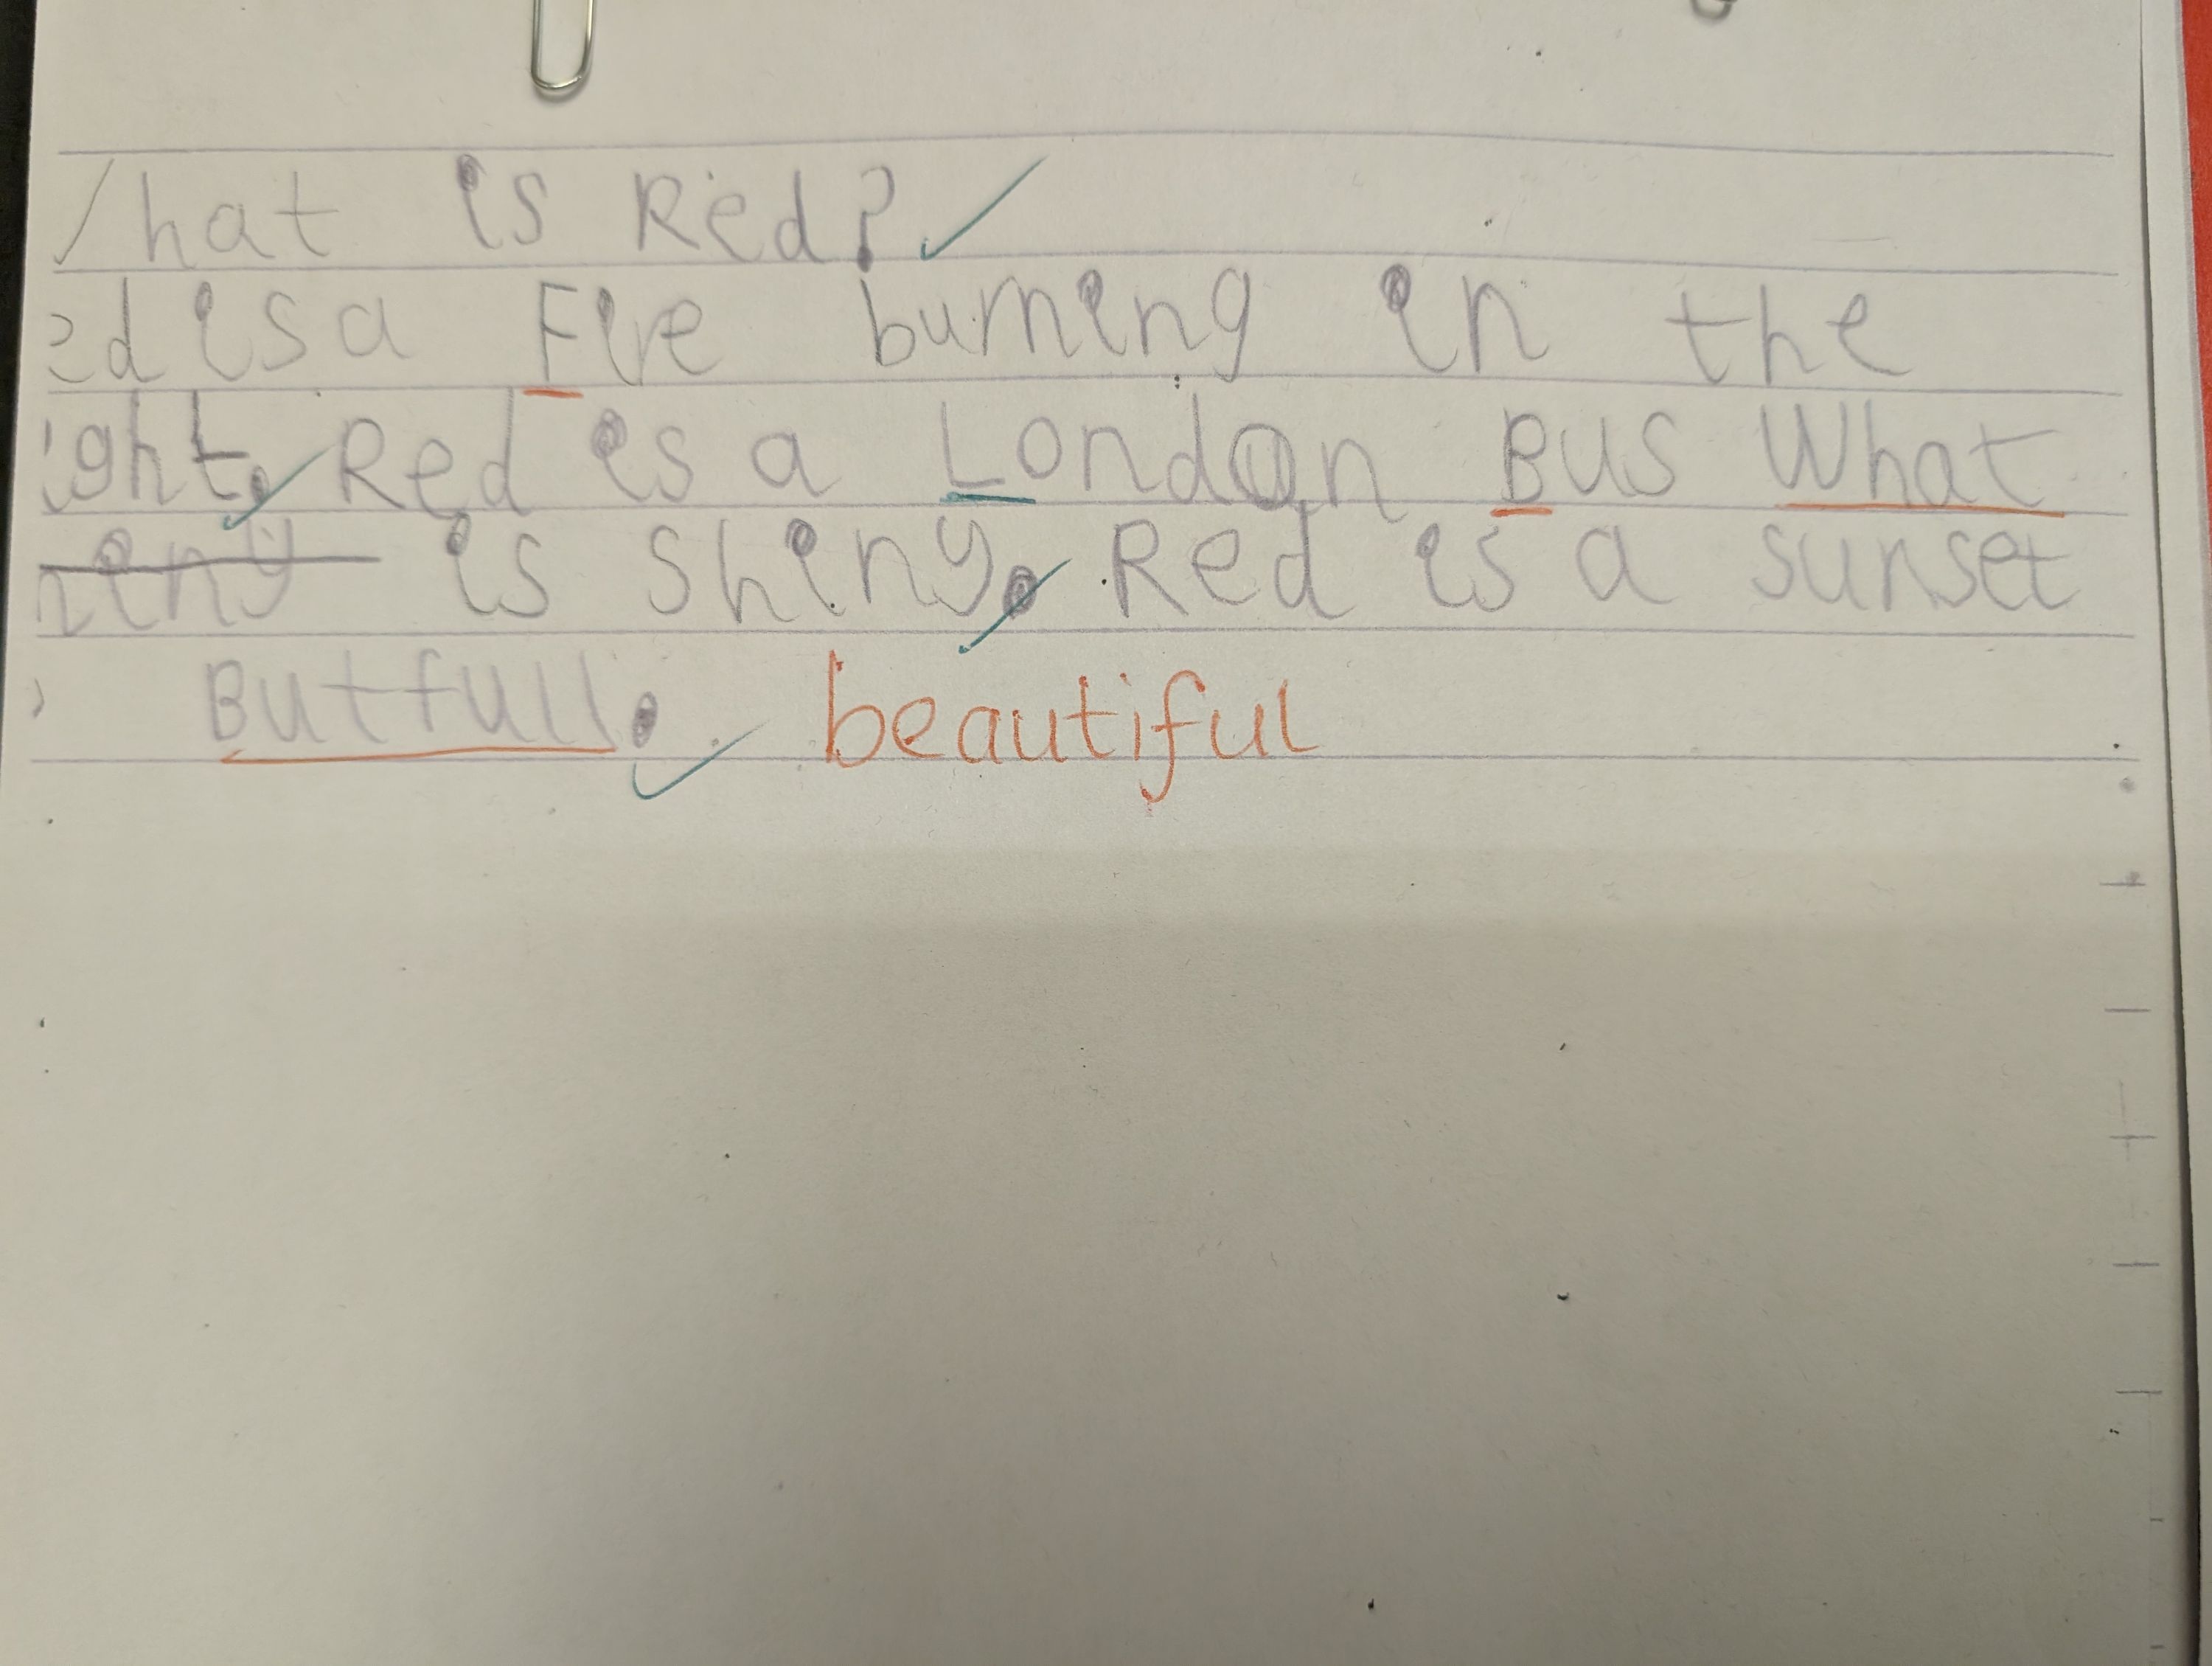 hat is Red?
ed is a Fire burning in the
ight. Red is a London Bus What
heny is Shiny. Red is a sunset
Butfull. beautiful